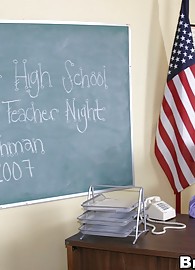 High School
Teacher Night
hman
2007
B